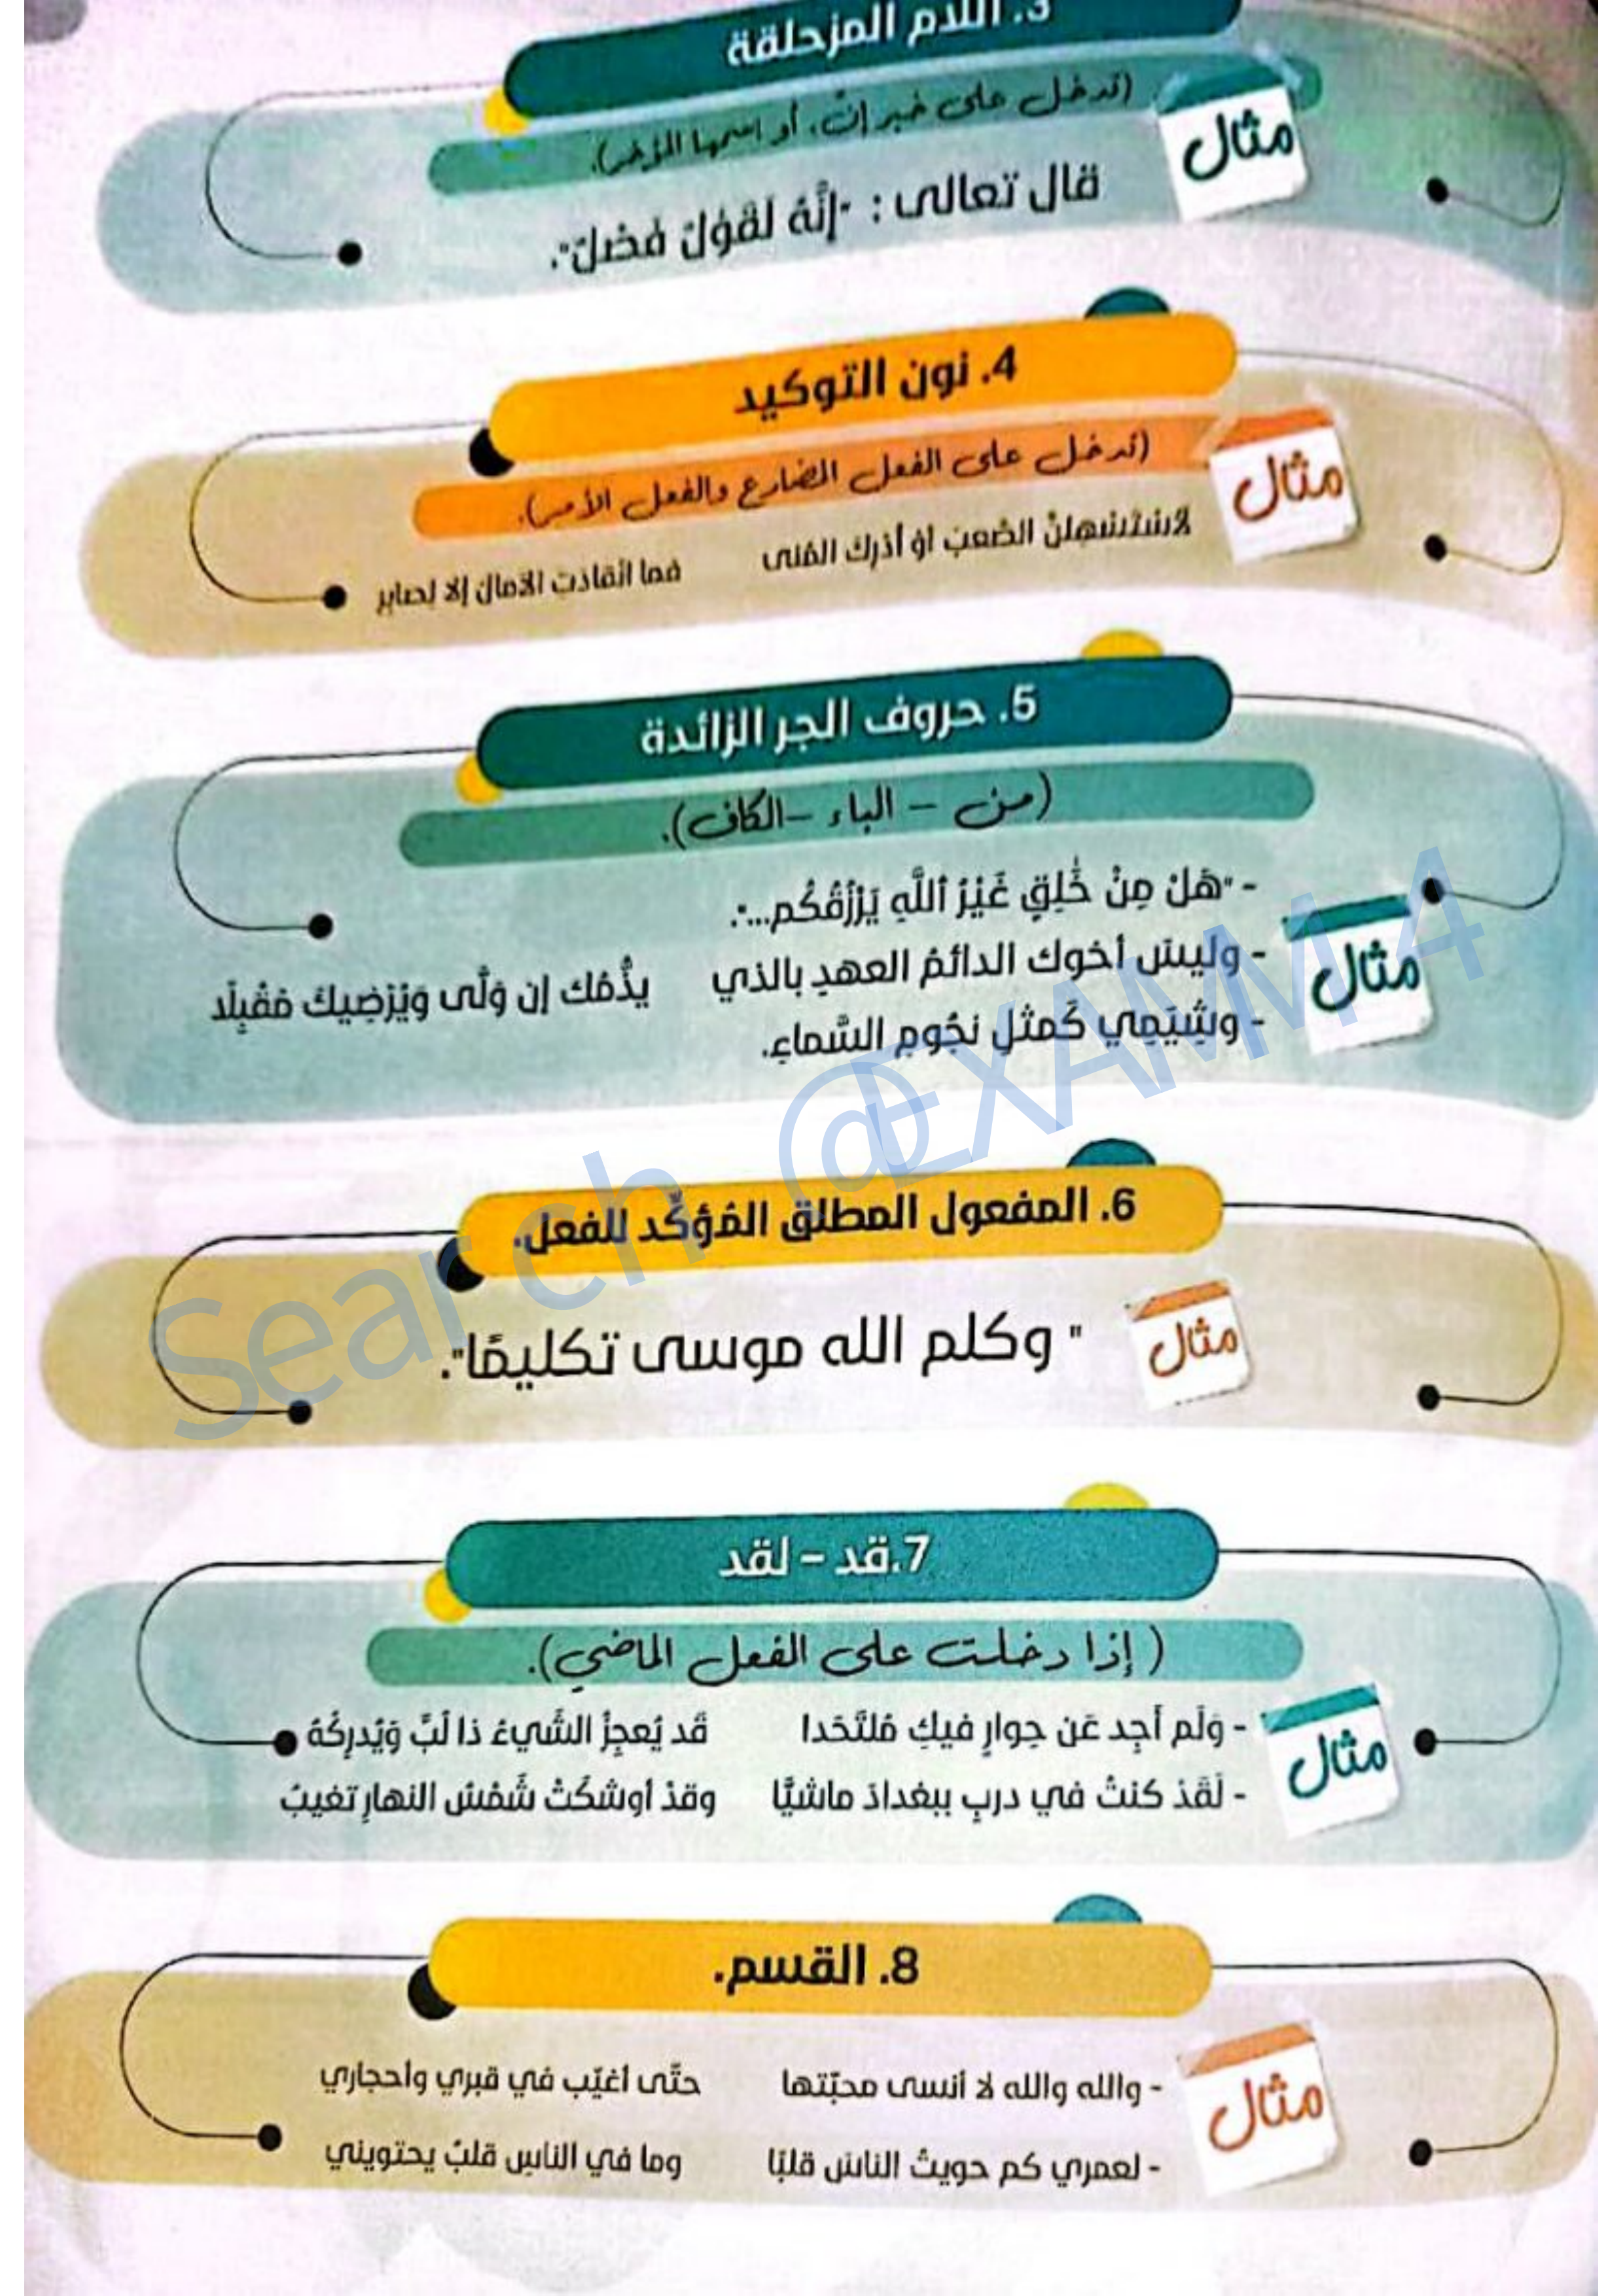 3. اللام المزحلقة
(تدخل على خبر إنّ، أو اسمها المؤخر).
مثال
قال تعالى : "إنَّهُ لَقَوْلٌ فَصْلٌ".
4. نون التوكيد
(تدخل على الفعل المضارع والفعل الأمر).
مثال
لأستسهلنَّ الصَّعبَ أوْ أدْرِكَ المُنى فما انْقادَت الآمالُ إلا لِصابِرِ
5. حروف الجر الزائدة
(من – الباء – الكاف).
مثال
- "هَلْ مِنْ خَٰلِقٍ غَيْرُ ٱللَّهِ يَرْزُقُكُم...".
- وليسَ أخوك الدائمُ العهدِ بالذي يذُّمُك إن وَلَّى وَيُرْضِيكَ مُقْبِلًا
- وشِيَمِي كَمثلِ نجُومِ السَّماءِ.
6. المفعول المطلق المُؤكِّد للفعل.
مثال
" وكلم الله موسى تكليمًا".
7.قد – لقد
( إذا دخلت على الفعل الماضي).
مثال
- وَلَم أَجِد عَن جِوارٍ فيكِ مُلتَحَدا قَد يُعجِزُ الشَّيءُ ذا لُبٍّ وَيُدرِكُهُ
- لَقَدْ كنتُ في دربٍ ببغدادَ ماشيًّا وقدْ أوشكَتْ شَمْسُ النهارِ تغيبُ
8. القسم.
مثال
- والله والله لا أنسى محبّتها حتّى أغيّب في قبري وأحجاري
- لعمري كم حويتُ الناسَ قلبًا وما في الناسِ قلبٌ يحتويني
Search @EXAMM4